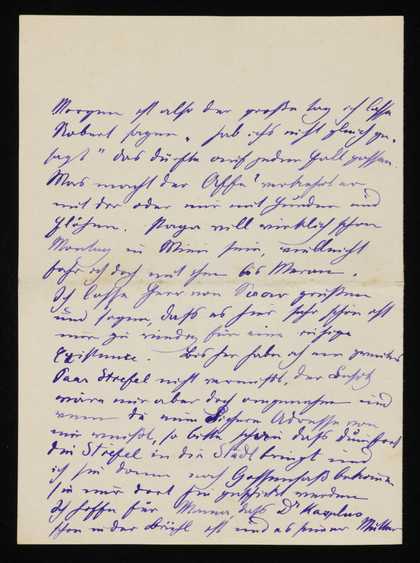 Morgen ist also der große Tag ich lasse
Robert sagen „hab ichs nicht gleich ge-
sagt" das dürfte auf jeden Fall passen.
Was macht der Affe? verkehrt er
mit dir oder nur mit Hunden und
Flöhen. Papa will wirklich schon
Montag in Wien sein, vielleicht
fahr ich doch mit ihm bis Meran.
Ich lasse Herr von Saar grüßen
und sagen, daß es hier sehr schön ist
nur zu für eine ruhige
Existence. Bisher habe ich ein zweites
Paar Stiefel nicht vermißt, der Besitz
wäre mir aber doch angenehm und
wenn du eine sichere Adresse von
mir weißt, so bitte schau daß
die Stiefel in die Stadt bringt und
ich sie dann nach Gossensaß bekomme
sie mir dort hin geschickt werden
Ich hoffe für Mama, daß Dr
schon in der Brühl ist und es seiner Mutter